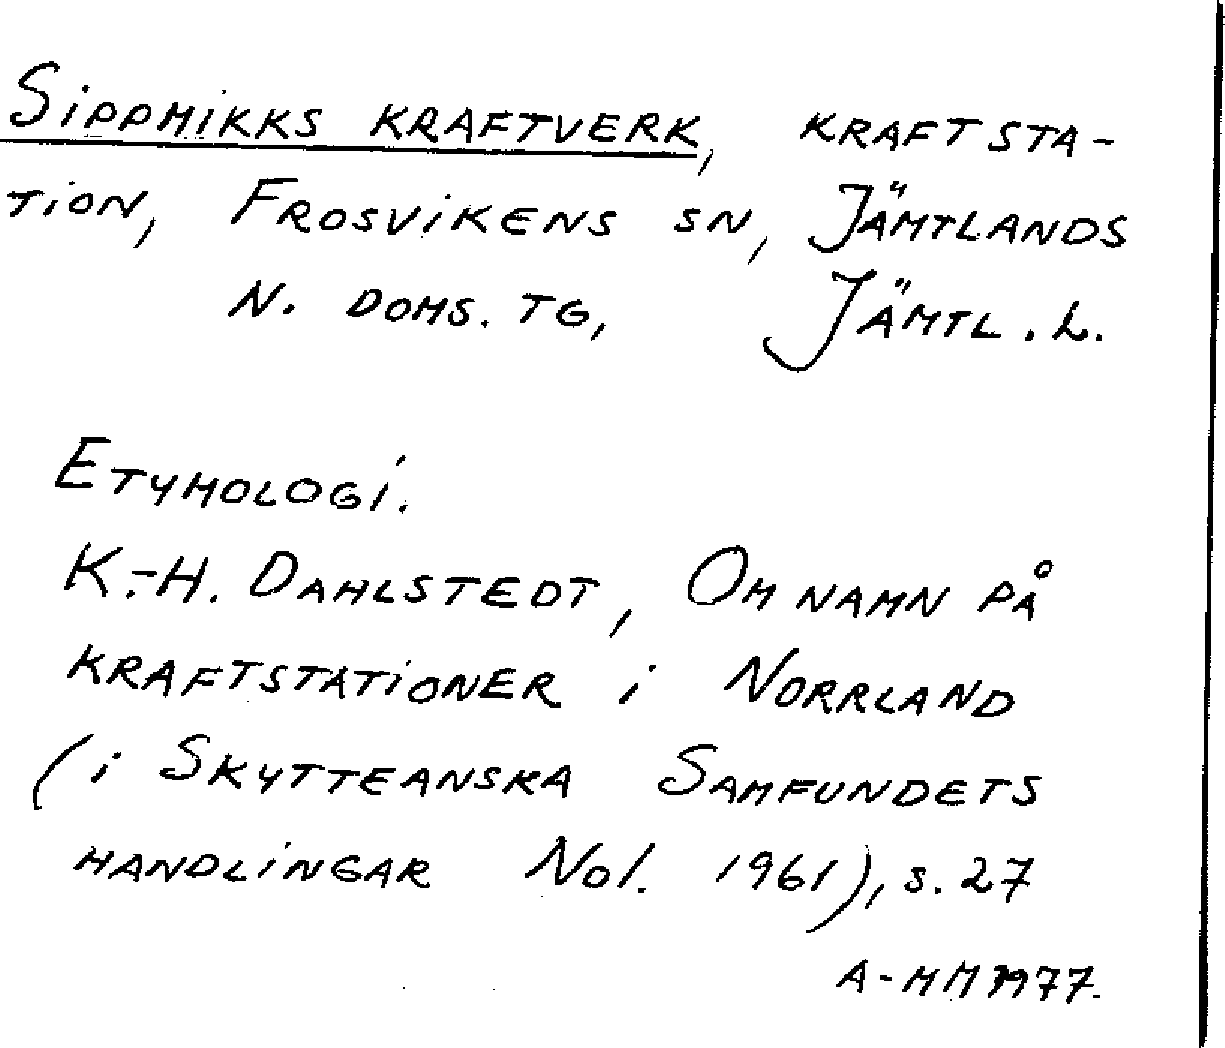 Sippmikks kraftverk, kraftsta-
tion, Frosvikens sn, Jämtlands
n. doms. tg, Jämtl. L.
Etymologi.
K.-H. Dahlstedt, Om namn på
kraftstationer i Norrland
(i Skytteanska Samfundets
handlingar No 1. 1961), s. 27
A-MM 1977.